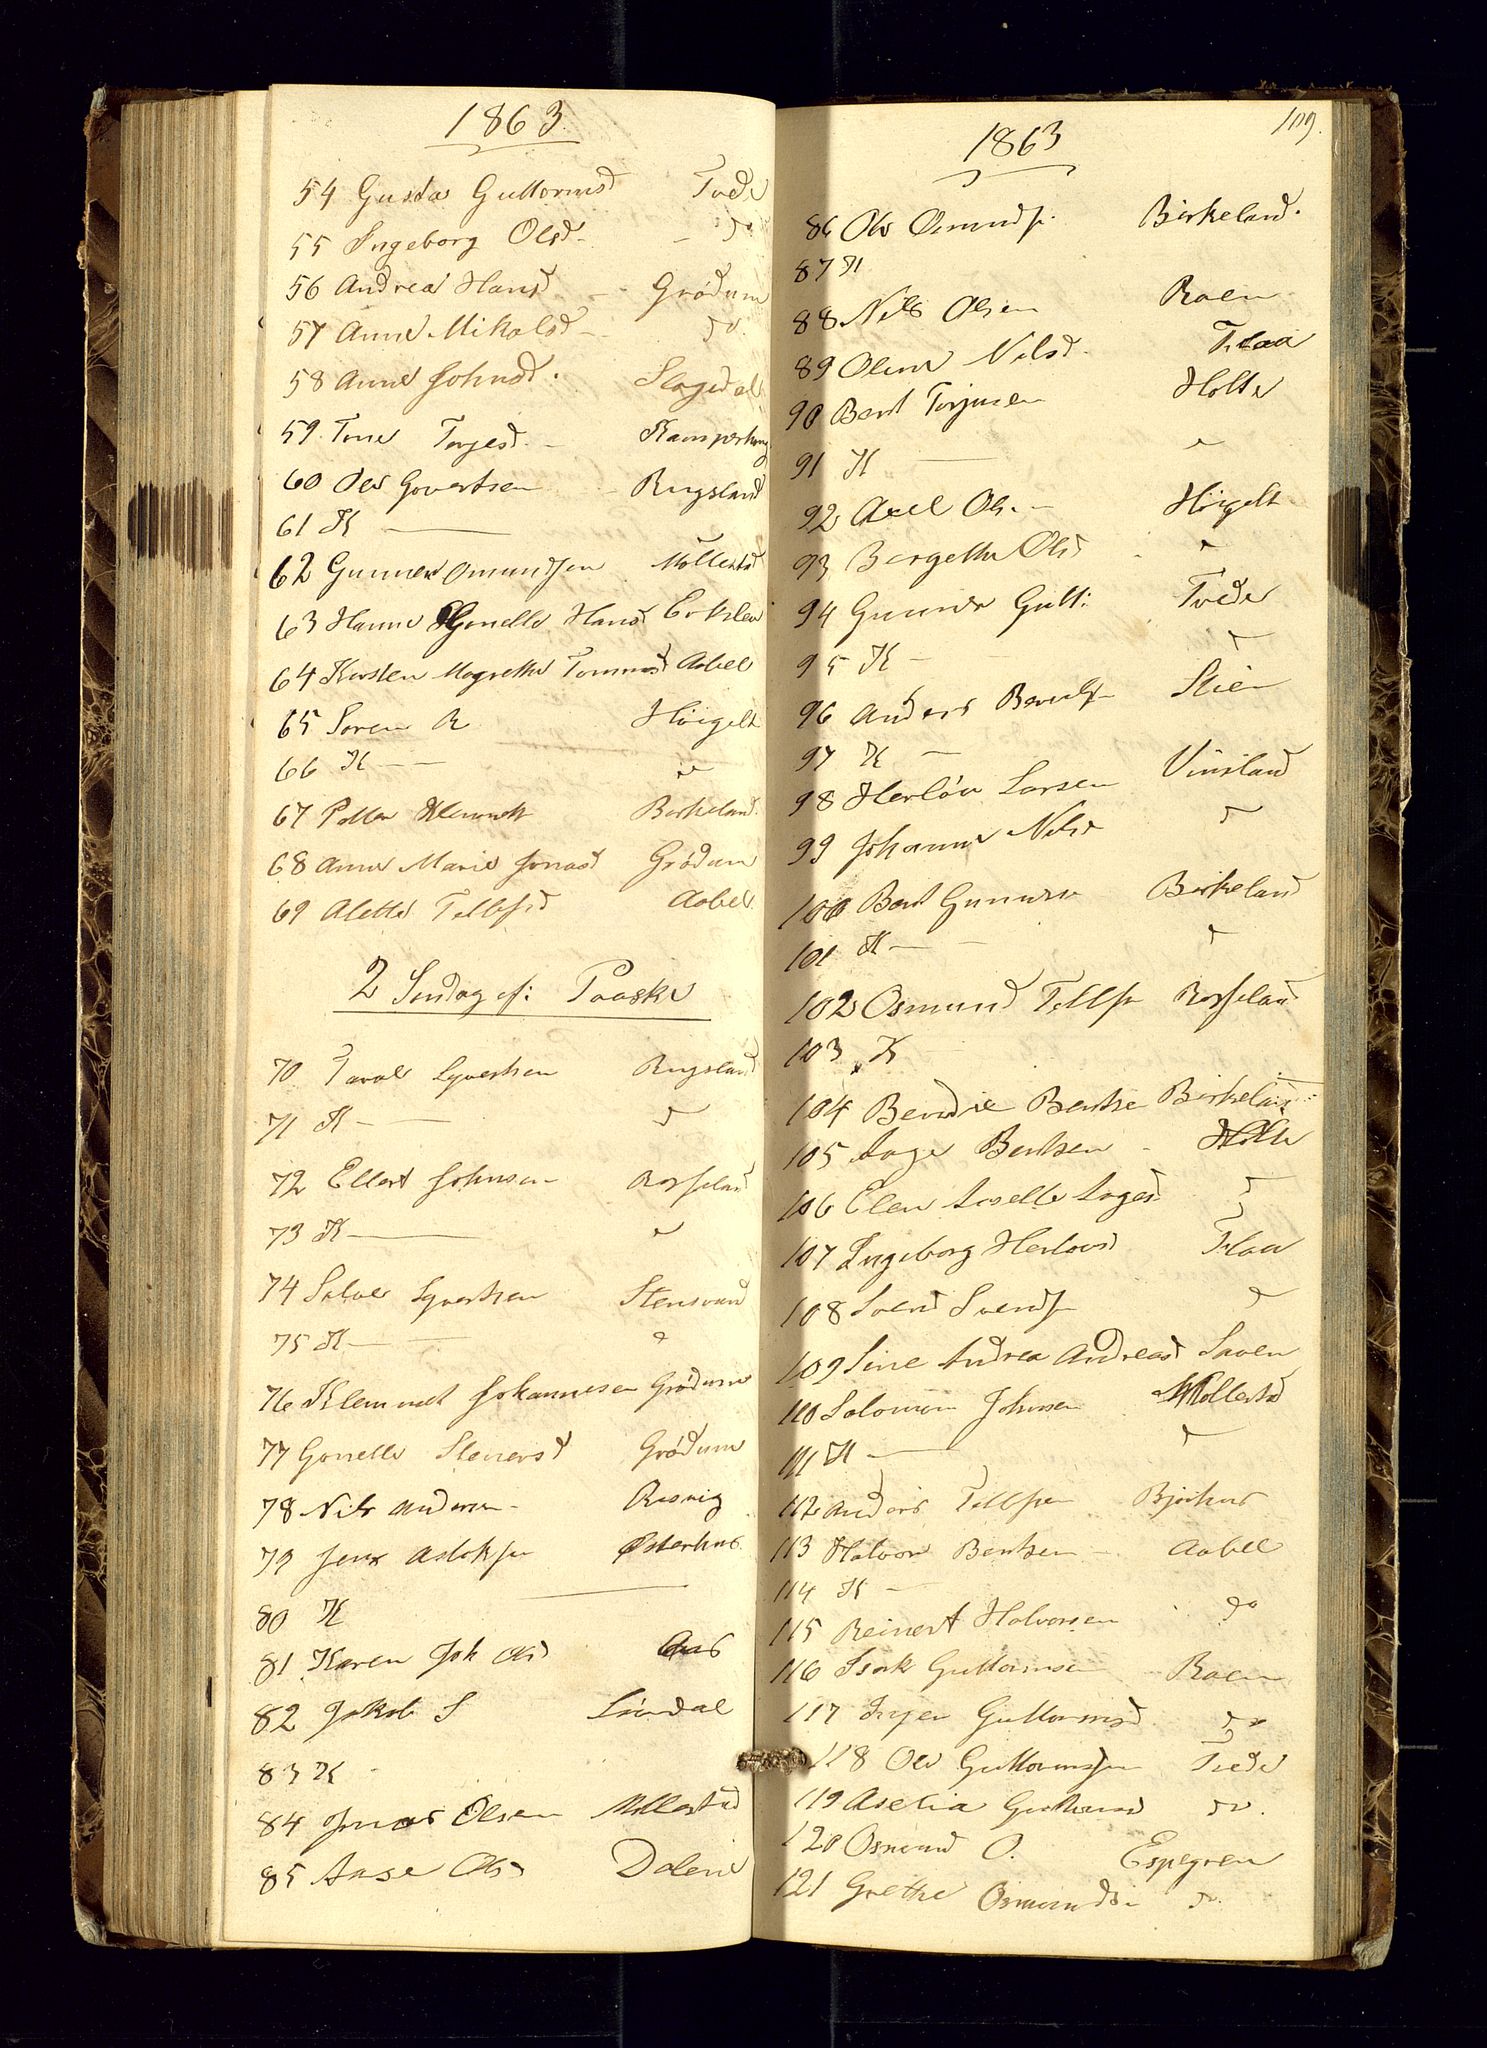 1863.
54 Gusta Guttormsd Tvede
55 Ingeborg Olsd - do
56 Andrea Hansd - Grødum
57 Anne Mikalsd - do.
58 Anne Johnsd. Slogedal
59 Tone Torjesd. -
60 Ole Govertsen Rugsland
61 K —
62 Gunner Omundsen Mollestad
63 Hanne Gonelle Hansd
64 Kirsten Magrethe Tommasd Aabel
65 Soren R Höigelt
66 K - - "
67 Klemmet Birkeland
68 Anne Marie Jonasd Grødum
69 Alette Tellefsd Aabel.
2 Søndag ef: Paaske
70 Tarald Syvertsen Rugsland
71 K - - do
72 Ellert Johnsen - Rosseland
73 K — "
74 Salve Syvertsen Stensvand
75 K - - "
76 Klemmet Johannesen Grødum
77 Gonelle Stenersd Grödum
78 Nils Andersen - Risvig
79 Jens Aslaksen Østerhus
80 K
81 Karen Joh Olsd Aas
82 Jakob S Lindal
83 K -
84 Jonas Olsen Mollestad
85 Aase Olsd Dalene
109.
1863
86 Ole Osmunds. Birkeland.
87 K
88 Nils Olsen Roen
89 Oline Nilsd. Flaa
90 Bent Torjusen Holte
91 K — "
92 Axel Ols. - Höigelt
93 Bergethe Olsd - "
94 Gunder Gutt: Tvede
95 K - do
96 Anders Stien
97 K - Vinsland
98 Herløv Larsen
99 Johanne Nilsd do
100 Bent Gunners Birkeland
101 K - - do
102 Osmund Tellefs Rosseland
103 K -
104 Bendte Bentse Birkeland
105 Aage Bentsen - Holte
106 Elen Giselle Aagesd do
107 Ingeborg Herlovsd Flaa
108 Svend Svends do
109 Sine Andrea Andreasd Saven
110 Solomon Johnsen Mollestad
111 K — do
112 Anders Tellefsen Bjorhus
113 Halvor Bentsen - Aabel
114 K -
115 Reinert Halvorsen do
116 Isak Guttormsen Roen
117 Inger Guttormsd do
118 Ole Guttormsen Tvede
119 Aselia Guttormsd do.
120 Osmund O. Espegren
121 Grethe Osmunds. do.